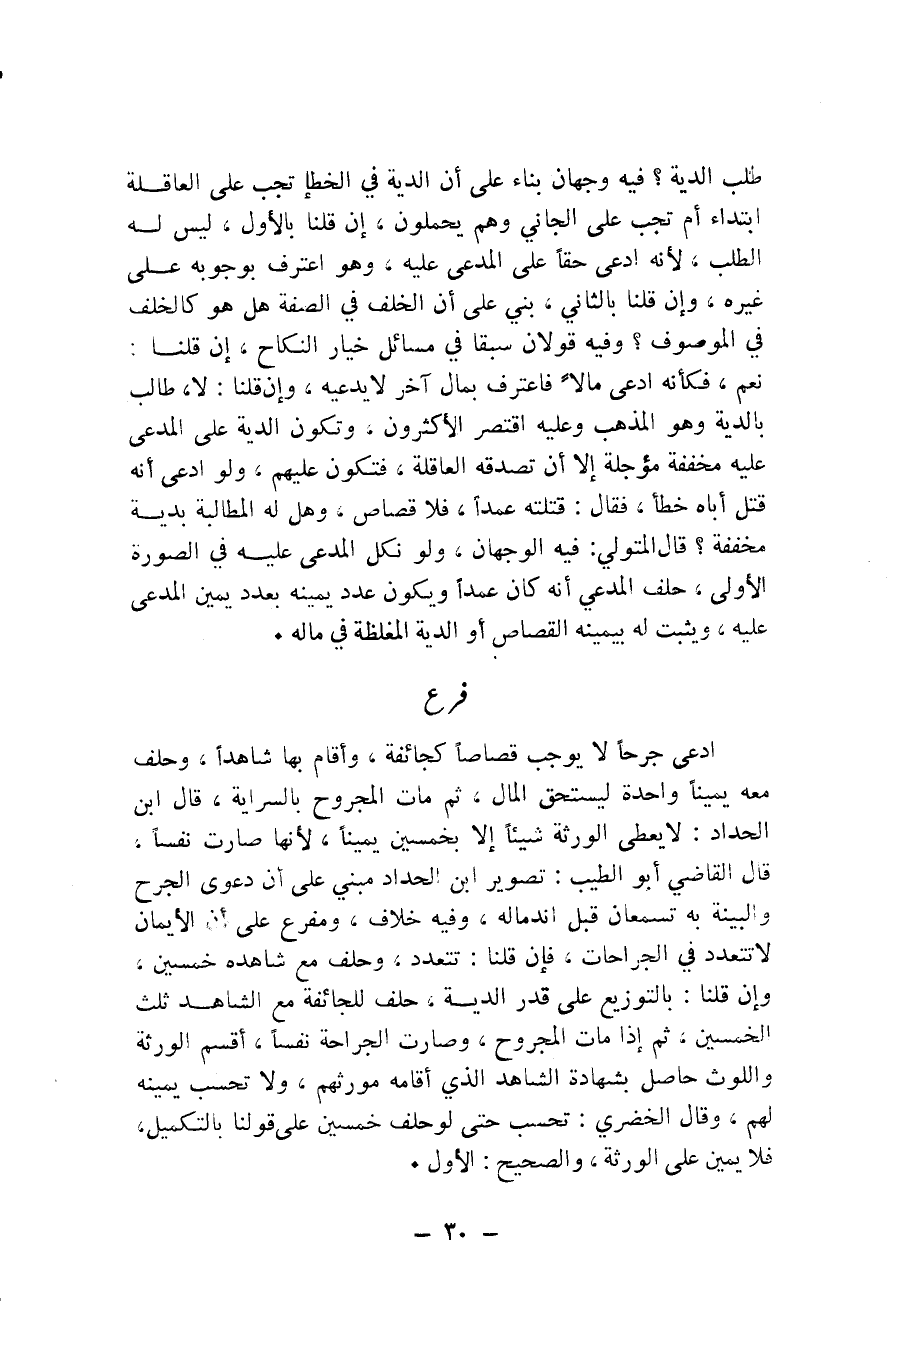 طلب الدية ؟ فيه وجهان بناء على أن الدية في الخطإ تجب على العاقـــلة
ابتداء أم تجب على الجاني وهم يحملون ، إن قلنا بالأول ، ليس لـــه
الطلب ، لأنه ادعى حقاً على المدعى عليه ، وهو اعترف بوجوبه عـــلى
غيره ، وإن قلنا بالثاني ، بني على أن الخلف في الصفة هل هو كالخلف
في الموصوف ؟ وفيه قولان سبقا في مسائل خيار النكاح ، إن قلنـــا :
نعم ، فكأنه ادعى مالاً فاعترف بمال آخر لايدعيه ، وإن قلنا : لا، طالب
بالدية وهو المذهب وعليه اقتصر الأكثرون ، وتكون الدية على المدعى
عليه مخففة مؤجلة إلا أن تصدقه العاقلة ، فتكون عليهم ، ولو ادعى أنه
قتل أباه خطأ ، فقال : قتلته عمداً ، فلا قصاص ، وهل له المطالبة بديـــة
مخففة ؟ قال المتولي: فيه الوجهان ، ولو نكل المدعى عليـــه في الصورة
الأولى ، حلف المدعي أنه كان عمداً ويكون عدد يمينه بعدد يمين المدعى
عليه ، ويثبت له بيمينه القصاص أو الدية المغلظة في ماله .
فرع
ادعى جرحاً لا يوجب قصاصاً كجائفة ، وأقام بها شاهداً ، وحلف
معه يميناً واحدة ليستحق المال ، ثم مات المجروح بالسراية ، قال ابن
الحداد : لايعطى الورثة شيئاً إلا بخمسين يميناً ، لأنها صارت نفساً ،
قال القاضي أبو الطيب : تصوير ابن الحداد مبني على أن دعوى الجرح
والبينة به تسمعان قبل اندماله ، وفيه خلاف ، ومفرع على أن الأيمان
لاتتعدد في الجراحات ، فإن قلنا : تتعدد ، وحلف مع شاهده خمسين ،
وإن قلنا : بالتوزيع على قدر الديـــة ، حلف للجائفة مع الشاهـــد ثلث
الخمسين ، ثم إذا مات المجروح ، وصارت الجراحة نفساً ، أقسم الورثة
واللوث حاصل بشهادة الشاهد الذي أقامه مورثهم ، ولا تحسب يمينه
لهم ، وقال الخضري : تحسب حتى لو حلف خمسين على قولنا بالتكميل،
فلا يمين على الورثة ، والصحيح : الأول .
— ٣٠ —